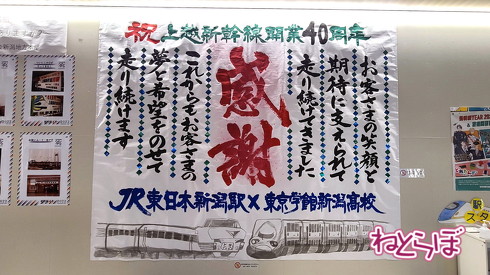 祝 上越新幹線開業40周年
お客さまの笑顔と
期待に支えられて
走り続けてきました
感謝
これからもお客さまの
夢と希望をのせて
走り続けます
JR東日本新潟駅×東京学館新潟高校
駅
スタ
ねとらぼ